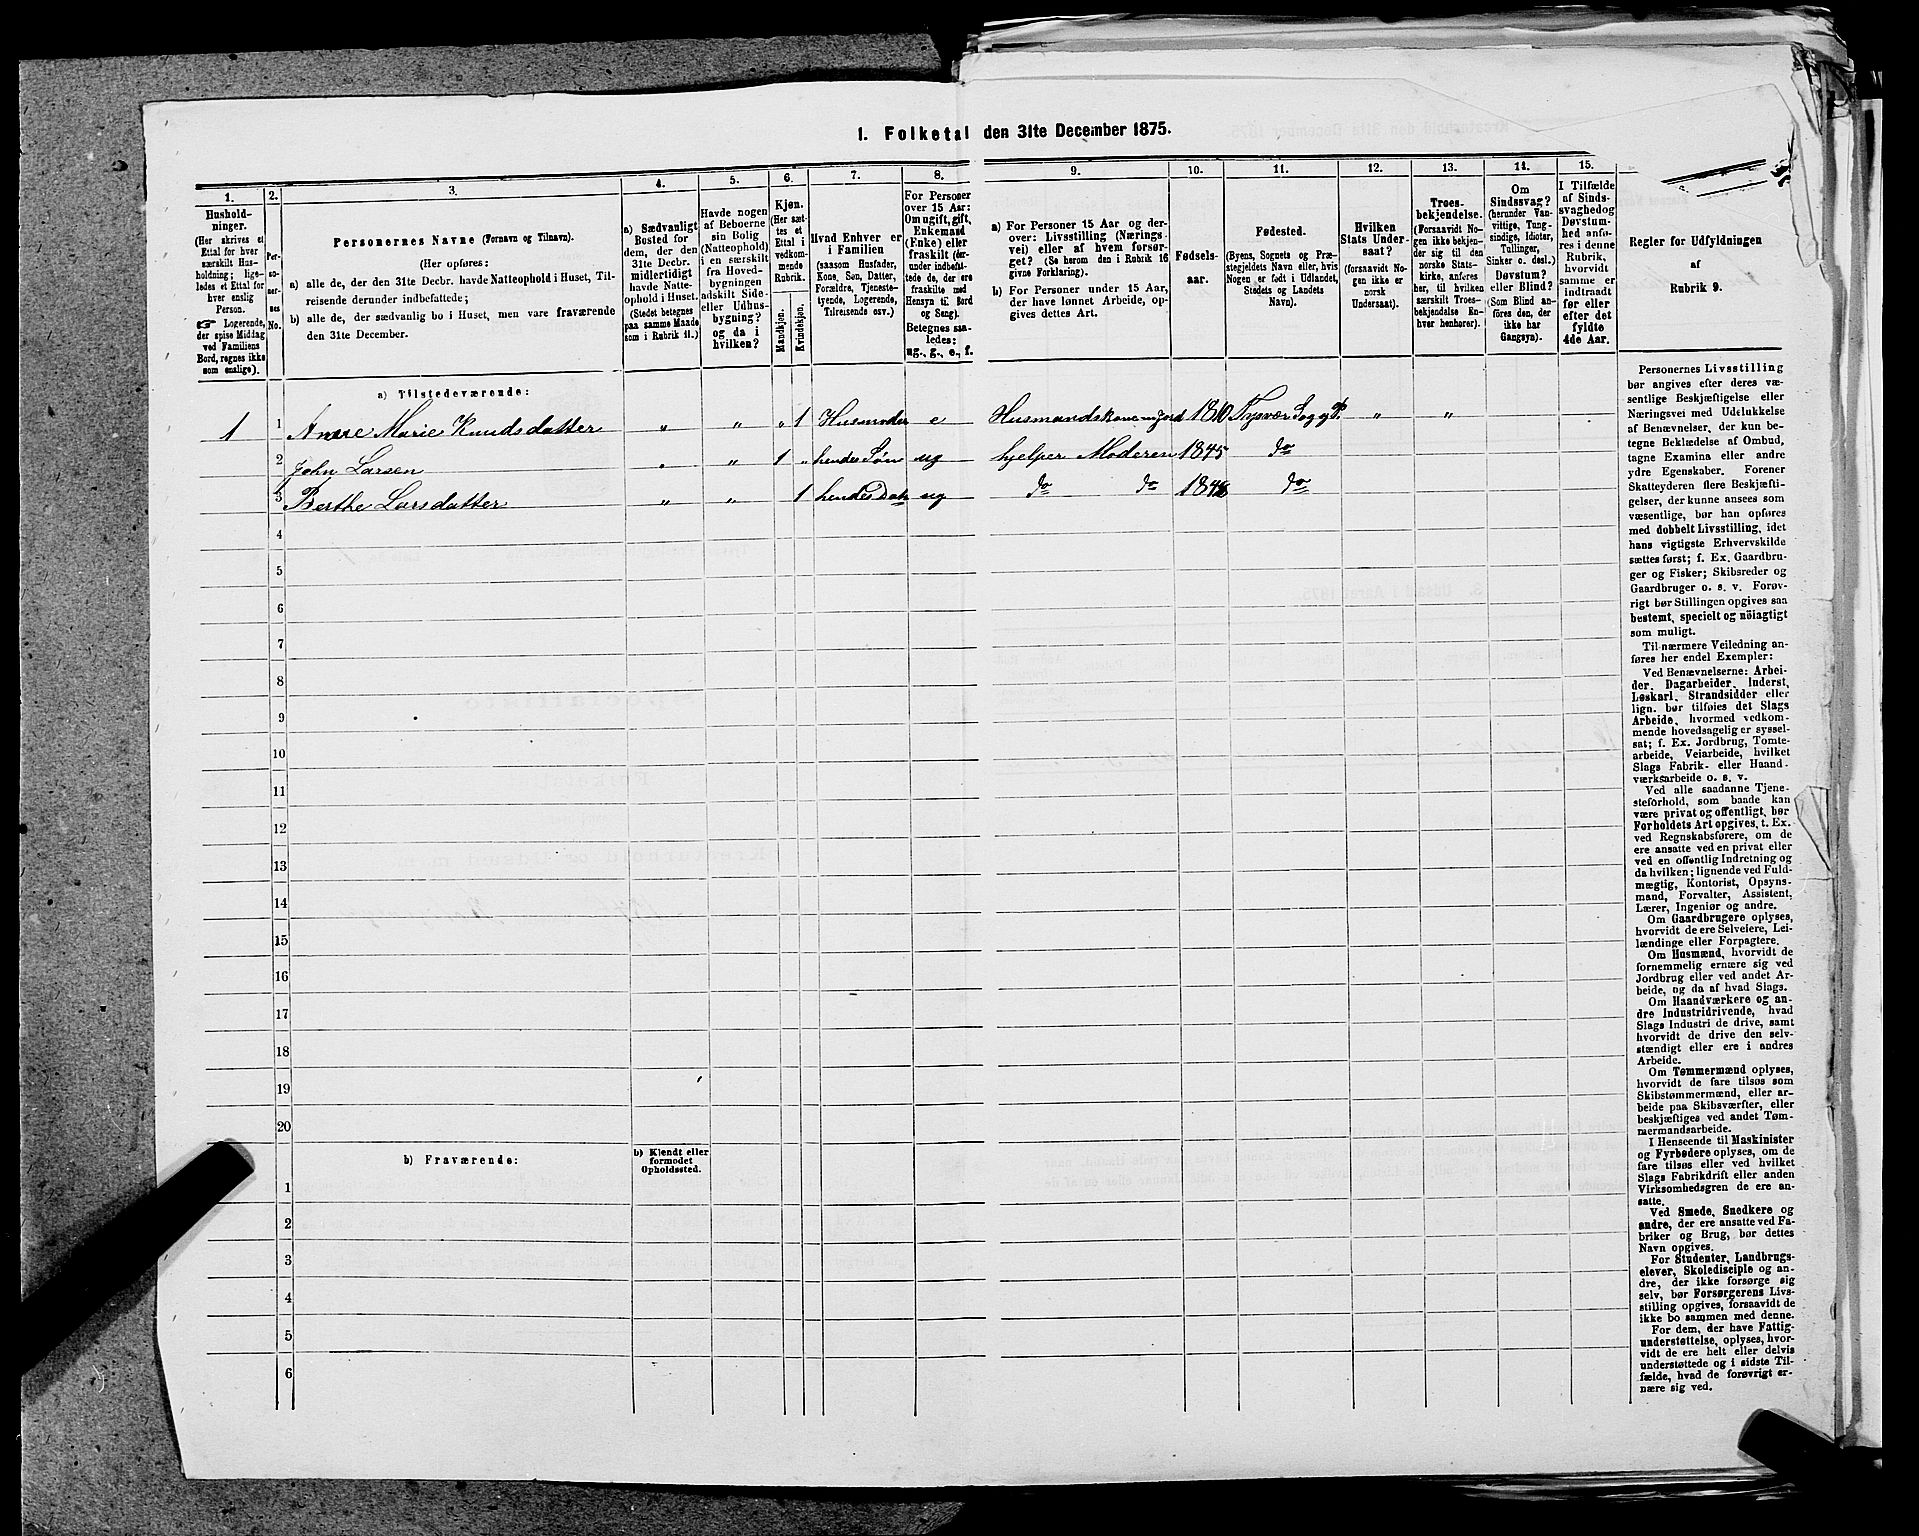 1. Folketal den 31te December 1875.
1.
Hushold-
ninger.
(Her skrives et
Ettal for hver
særskilt Hus-
holdning; lige-
ledes et Ettal for
hver enslig
Person.
☞ Logerende,
der spise Middag
ved Familiens
Bord, regnes ikke
som enslige).
2.
Per-
so-
ner-
nes
No.
3.
Personernes Navne (Fornavn og Tilnavn).
(Her opføres:
a) alle de, der den 31te Decbr. havde Natteophold i Huset, Til-
reisende derunder indbefattede;
b) alle de, der sædvanlig bo i Huset, men vare fraværende
den 31te December.
4.
a) Sædvanligt
Bosted for
dem, der den
31te Decbr.
midlertidigt
havde Natte-
ophold i Huset.
(Stedet betegnes
paa samme Maade
som i Rubrik 11.)
5.
Havde nogen
af Beboerne
sin Bolig
(Natteophold)
i en særskilt
fra Hoved-
bygningen
adskilt Side-
eller Udhus-
bygning?
og da i
hvilken?
6.
Kjøn.
(Her sæt-
tes et
Ettal i
vedkom-
mende
Rubrik.
Mandkjøn.
Kvindekjøn.
7.
Hvad Enhver er
i Familien
(saasom Husfader,
Kone, Søn, Datter,
Forældre, Tjeneste-
tyende, Logerende,
Tilreisende osv.)
8.
For Personer
over 15 Aar:
Om ugift, gift,
Enkemand
(Enke) eller
fraskilt (der-
under indbefat-
tede de, der ere
fraskilte med
Hensyn til Bord
og Seng).
Betegnes saa-
ledes:
ug., g., e., f.
9.
a) For Personer 15 Aar og der-
over: Livsstilling (Nærings-
vei) eller af hvem forsør-
get? (Se herom den i Rubrik 16
givne Forklaring).
b) For Personer under 15 Aar,
der have lønnet Arbeide, op-
gives dettes Art.
10.
Fødsels-
aar.
11.
Fødested.
(Byens, Sognets og Præ-
stegjeldets Navn eller, hvis
Nogen er født i Udlandet,
Stedets og Landets
Navn).
12.
Hvilken
Stats Under-
saat?
(forsaavidt No-
gen ikke er
norsk
Undersaat).
13.
Troes-
bekjendelse.
(Forsaavidt No-
gen ikke bekjen-
der sig til den
norske Stats-
kirke, anføres
her, til hvilken
særskilt Troes-
bekjendelse En-
hver henhører).
14.
Om
Sindssvag?
(herunder Van-
vittige, Tung-
sindige, Idioter,
Tullinger,
Sinker o. desl.)
Døvstum?
eller Blind?
(Som Blind an-
føres den, der
ikke har
Gangsyn).
15.
I Tilfælde
af Sinds-
svaghed og
Døvstum-
hed anfø-
res i denne
Rubrik,
hvorvidt
samme er
indtraadt
før eller
efter det
fyldte
4de Aar.
Regler for Udfyldningen
af
Rubrik 9.
a) Tilstedeværende:
1 1 Anne Marie Knudsdatter " " " 1 Husmoder e Husmandskone m Jord 1810 Tysvær Sog og P. " "
2 John Larsen " " 1 " hendes Søn ug hjelper Moderen 1845 do
3 Berthe Larsdatter " " 1 hendes Datr ug do do 1848 do
4
5
6
7
8
9
10
11
12
13
14
15
16
17
18
19
20
b) Fraværende:
b) Kjendt eller
formodet
Opholdssted.
1
2
3
4
5
6
Personernes Livsstilling
bør angives efter deres væ-
sentlige Beskjæftigelse eller
Næringsvei med Udelukkelse
af Benævnelser, der kun be-
tegne Beklædelse af Ombud,
tagne Examina eller andre
ydre Egenskaber. Forener
Skatteyderen flere Beskjæfti-
gelser, der kunne ansees som
væsentlige, bør han opføres
med dobbelt Livsstilling, idet
hans vigtigste Erhvervskilde
sættes først; f. Ex. Gaardbru-
ger og Fisker; Skibsreder og
Gaardbruger o. s. v. Forøv-
rigt bør Stillingen opgives saa
bestemt, specielt og nöiagtigt
som muligt.
Til nærmere Veiledning an-
føres her endel Exempler:
Ved Benævnelserne: Arbei-
der, Dagarbeider, Inderst,
Løskarl, Strandsidder eller
lign. bør tilføies det Slags
Arbeide, hvormed vedkom-
mende hovedsagelig er syssel-
sat; f. Ex. Jordbrug, Tomte-
arbeide, Veiarbeide, hvilket
Slags Fabrik- eller Haand-
værksarbeide o. s. v.
Ved alle saadanne Tjene-
steforhold, som baade kan
være privat og offentligt, bør
Forholdets Art opgives, t. Ex.
ved Regnskabsførere, om de
ere ansatte ved en privat eller
ved en offentlig Indretning og
da hvilken; lignende ved Fuld-
mægtig, Kontorist, Opsyns-
mand, Forvalter, Assistent,
Lærer, Ingeniør og andre.
Om Gaardbrugere oplyses,
hvorvidt de ere Selveiere, Lei-
lændinge eller Forpagtere.
Om Husmænd, hvorvidt de
fornemmelig ernære sig ved
Jordbrug eller ved andet Ar-
beide, og da af hvad Slags.
Om Haandværkere og an-
dre Industridrivende, hvad
Slags Industri de drive, samt
hvorvidt de drive den selv-
stændigt eller ere i andres
Arbeide.
Om Tømmermænd oplyses,
hvorvidt de fare tilsøs som
Skibstømmermænd, eller ar-
beide paa Skibsværfter, eller
beskjæftiges ved andet Tøm-
mermandsarbeide.
I Henseende til Maskinister
og Fyrbødere oplyses, om de
fare tilsøs eller ved hvilket
Slags Fabrikdrift eller anden
Virksomhedsgren de ere an-
satte.
Ved Smede, Snedkere og
andre, der ere ansatte ved Fa-
briker og Brug, bør dettes
Navn opgives.
For Studenter, Landbrugs-
elever, Skoledisciple og an-
dre, der ikke forsørge sig
selv, bør Forsørgerens Livs-
stilling opgives, forsaavidt de
ikke bo sammen med denne.
For dem, der have Fattig-
understøttelse, oplyses, hvor-
vidt de ere helt eller delvis
understøttede og i sidste Til-
fælde, hvad de forøvrigt er-
nære sig ved.